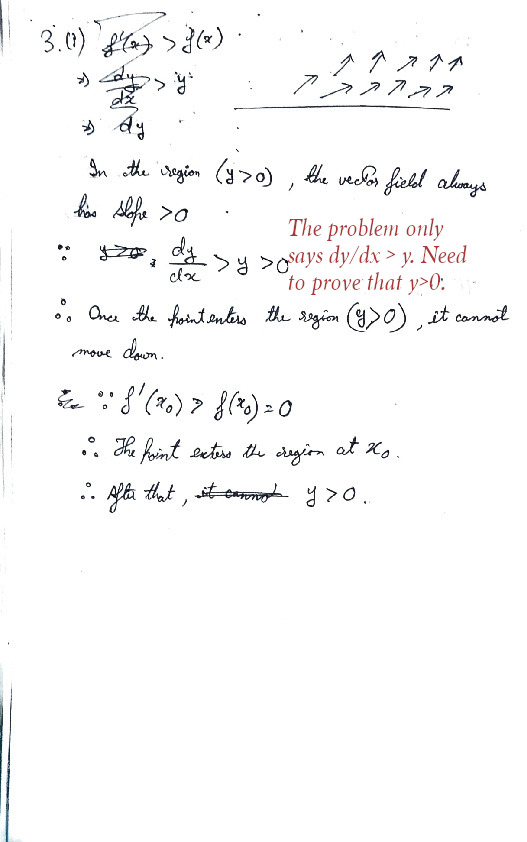 3.(1) f'(x) > f(x)
⇒ dy/dx > y
⇒ dy
In the region (y>0), the vector field always
has slope >0
∵ y>0, dy/dx > y > 0
The problem only
says dy/dx > y. Need
to prove that y>0.
∴ Once the point enters the region (y>0), it cannot
move down.
∵ f'(x₀) > f(x₀) = 0
∴ The point enters the region at x₀.
∴ After that, it cannot y > 0.